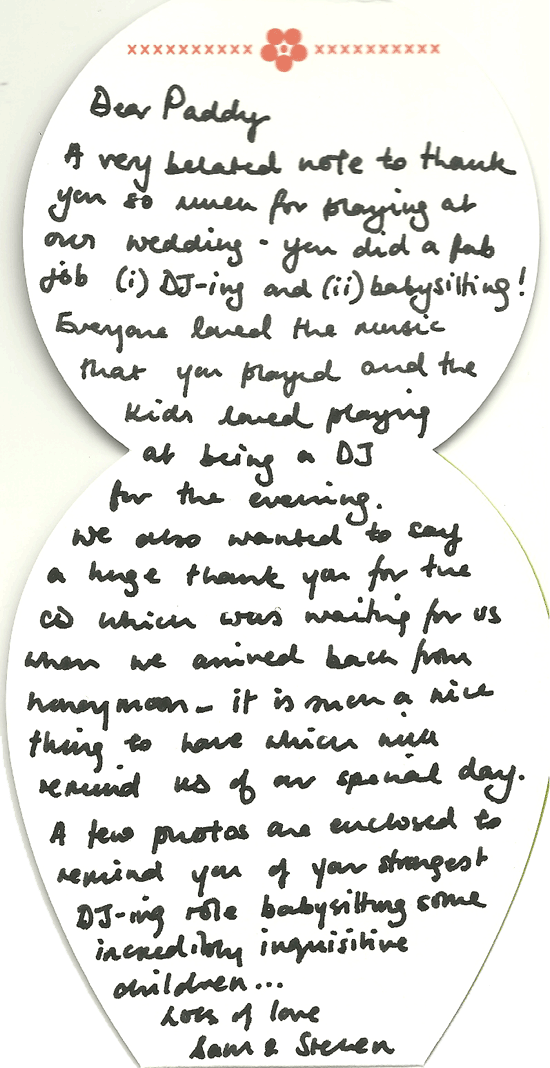 Dear Paddy
A very belated note to thank
you so much for playing at
our wedding - you did a fab
job (i) DJ-ing and (ii) babysitting!
Everyone loved the music
that you played and the
kids loved playing
at being a DJ
for the evening.
We also wanted to say
a huge thank you for the
CD which was waiting for us
when we arrived back from
honeymoon - it is such a nice
thing to have which will
remind us of our special day.
A few photos are enclosed to
remind you of your strangest
DJ-ing role babysitting some
incredibly inquisitive
children...
Lots of love
Sam & Steven